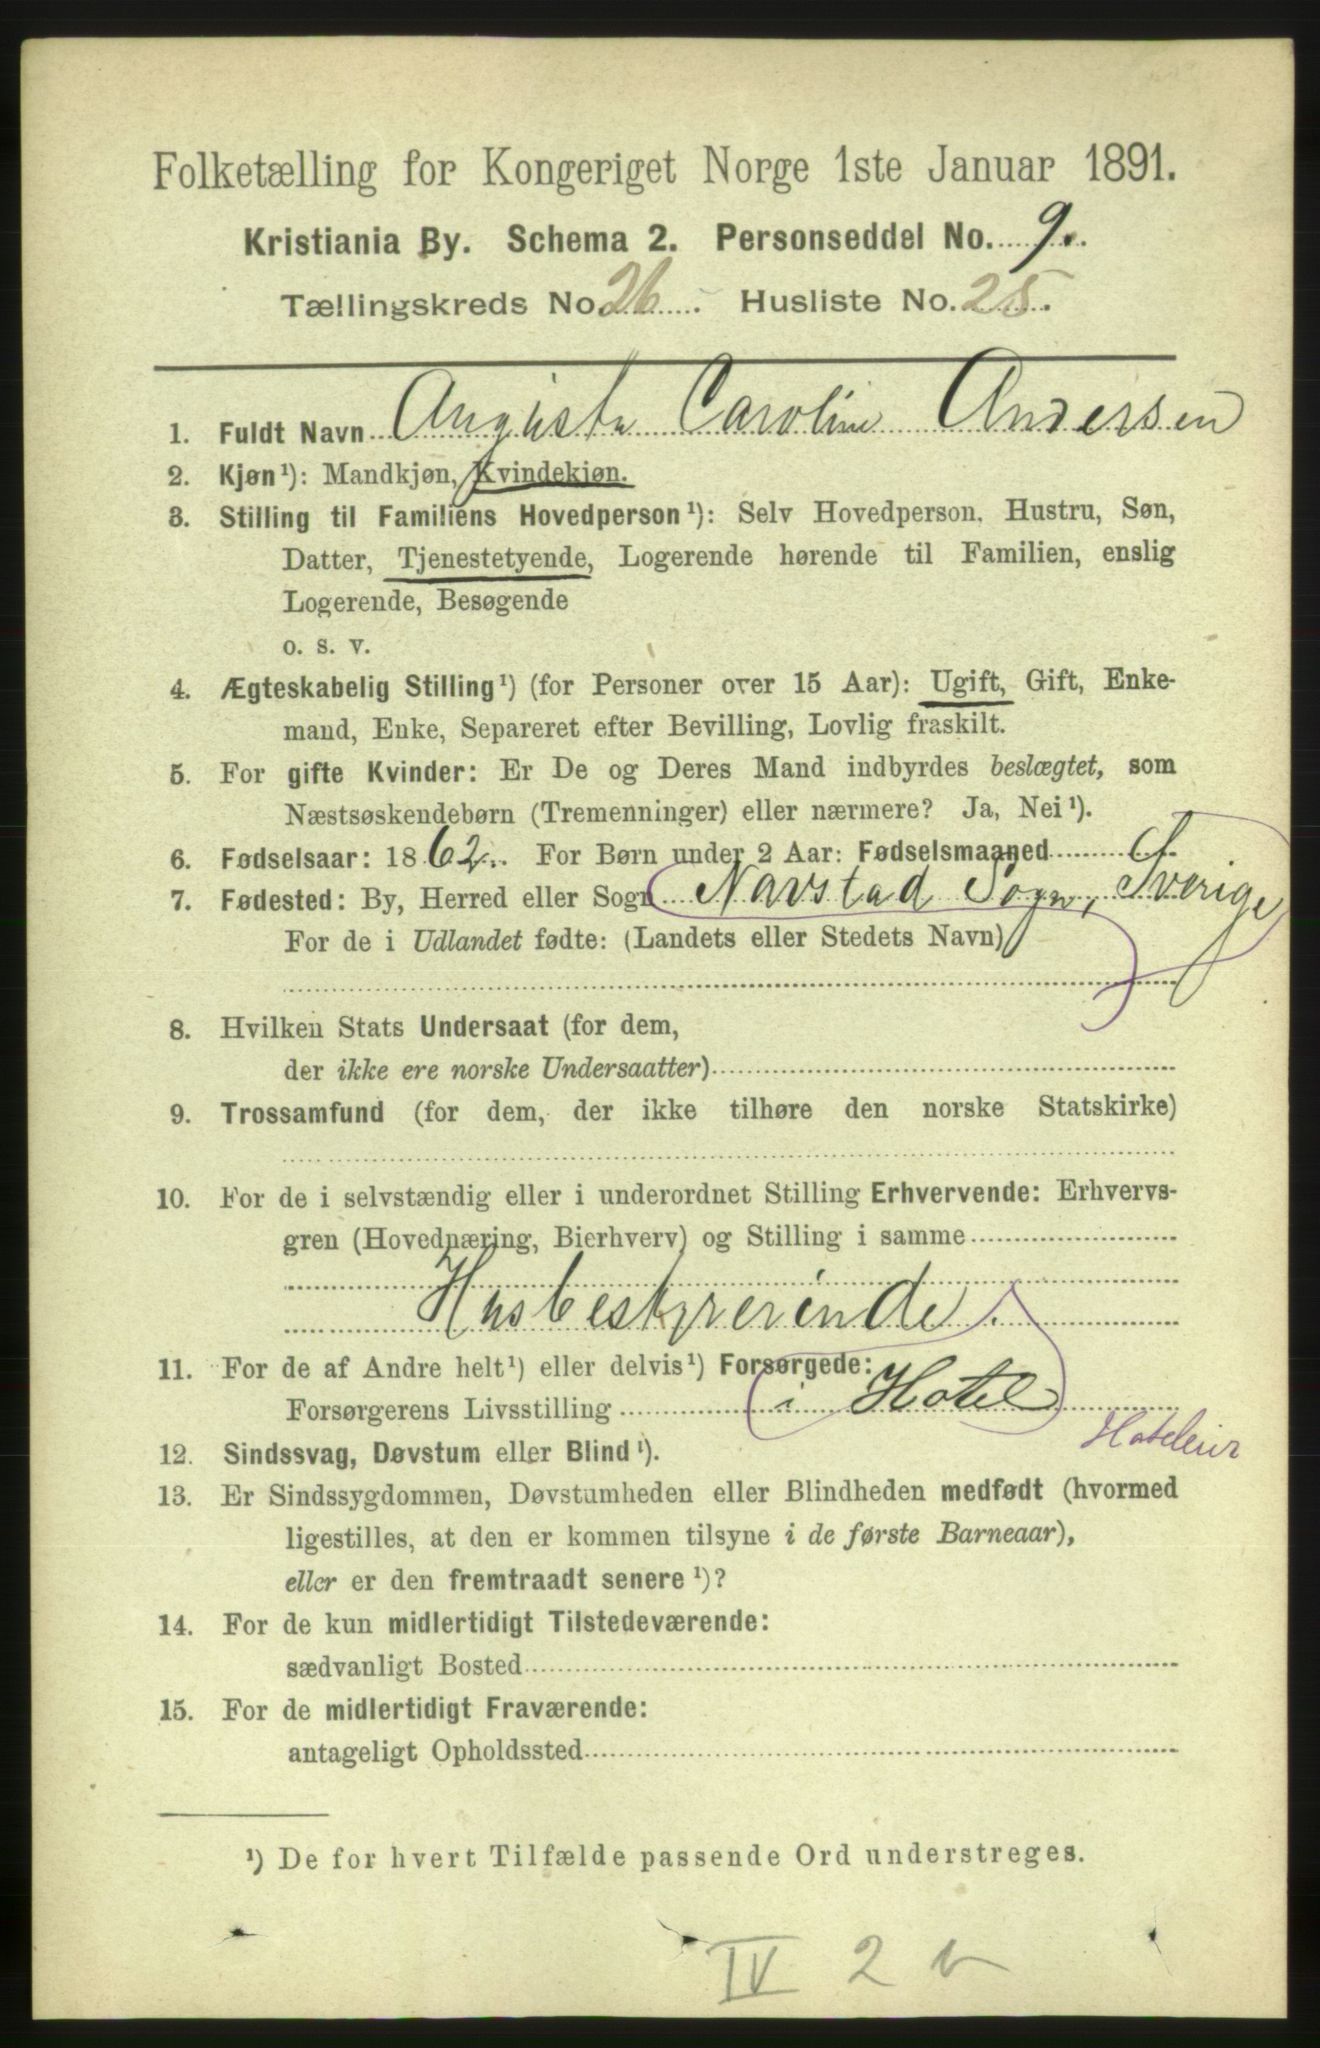 Folketælling for Kongeriget Norge 1ste Januar 1891.
Kristiania By. Schema 2. Personseddel No. 9.
Tællingskreds No. 26. Husliste No. 25.
1. Fuldt Navn Augusta Caroline Andersen
2. Kjøn¹): Mandkjøn, Kvindekjøn.
3. Stilling til Familiens Hovedperson¹): Selv Hovedperson, Hustru, Søn,
Datter, Tjenestetyende, Logerende hørende til Familien, enslig
Logerende, Besøgende
o. s. v.
4. Ægteskabelig Stilling¹) (for Personer over 15 Aar): Ugift, Gift, Enke-
mand, Enke, Separeret efter Bevilling, Lovlig fraskilt.
5. For gifte Kvinder: Er De og Deres Mand indbyrdes beslægtet, som
Næstsøskendebørn (Tremenninger) eller nærmere? Ja, Nei¹).
6. Fødselsaar: 1862. For Børn under 2 Aar: Fødselsmaaned
7. Fødested: By, Herred eller Sogn Navstad Sogn, Sverige
For de i Udlandet fødte: (Landets eller Stedets Navn)
8. Hvilken Stats Undersaat (for dem,
der ikke ere norske Undersaatter)
9. Trossamfund (for dem, der ikke tilhøre den norske Statskirke)
10. For de i selvstændig eller i underordnet Stilling Erhvervende: Erhvervs-
gren (Hovednæring, Bierhverv) og Stilling i samme
Husbestyrerinde.
11. For de af Andre helt¹) eller delvis¹) Forsørgede:
Forsørgerens Livsstilling i Hotel
Hoteleier
12. Sindssvag, Døvstum eller Blind¹).
13. Er Sindssygdommen, Døvstumheden eller Blindheden medfødt (hvormed
ligestilles, at den er kommen tilsyne i de første Barneaar),
eller er den fremtraadt senere¹)?
14. For de kun midlertidigt Tilstedeværende:
sædvanligt Bosted
15. For de midlertidigt Fraværende:
antageligt Opholdssted
¹) De for hvert Tilfælde passende Ord understreges.
IV 2 b